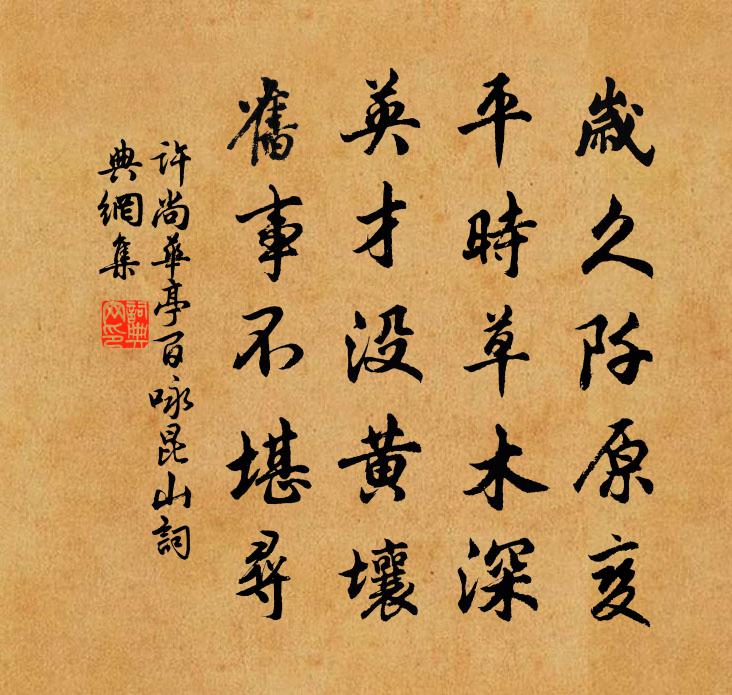 歲久阡原变
平時草木深
英才没黃壤
舊事不堪尋
許尚華亭百咏昆山詞
典網集
詞典
网印